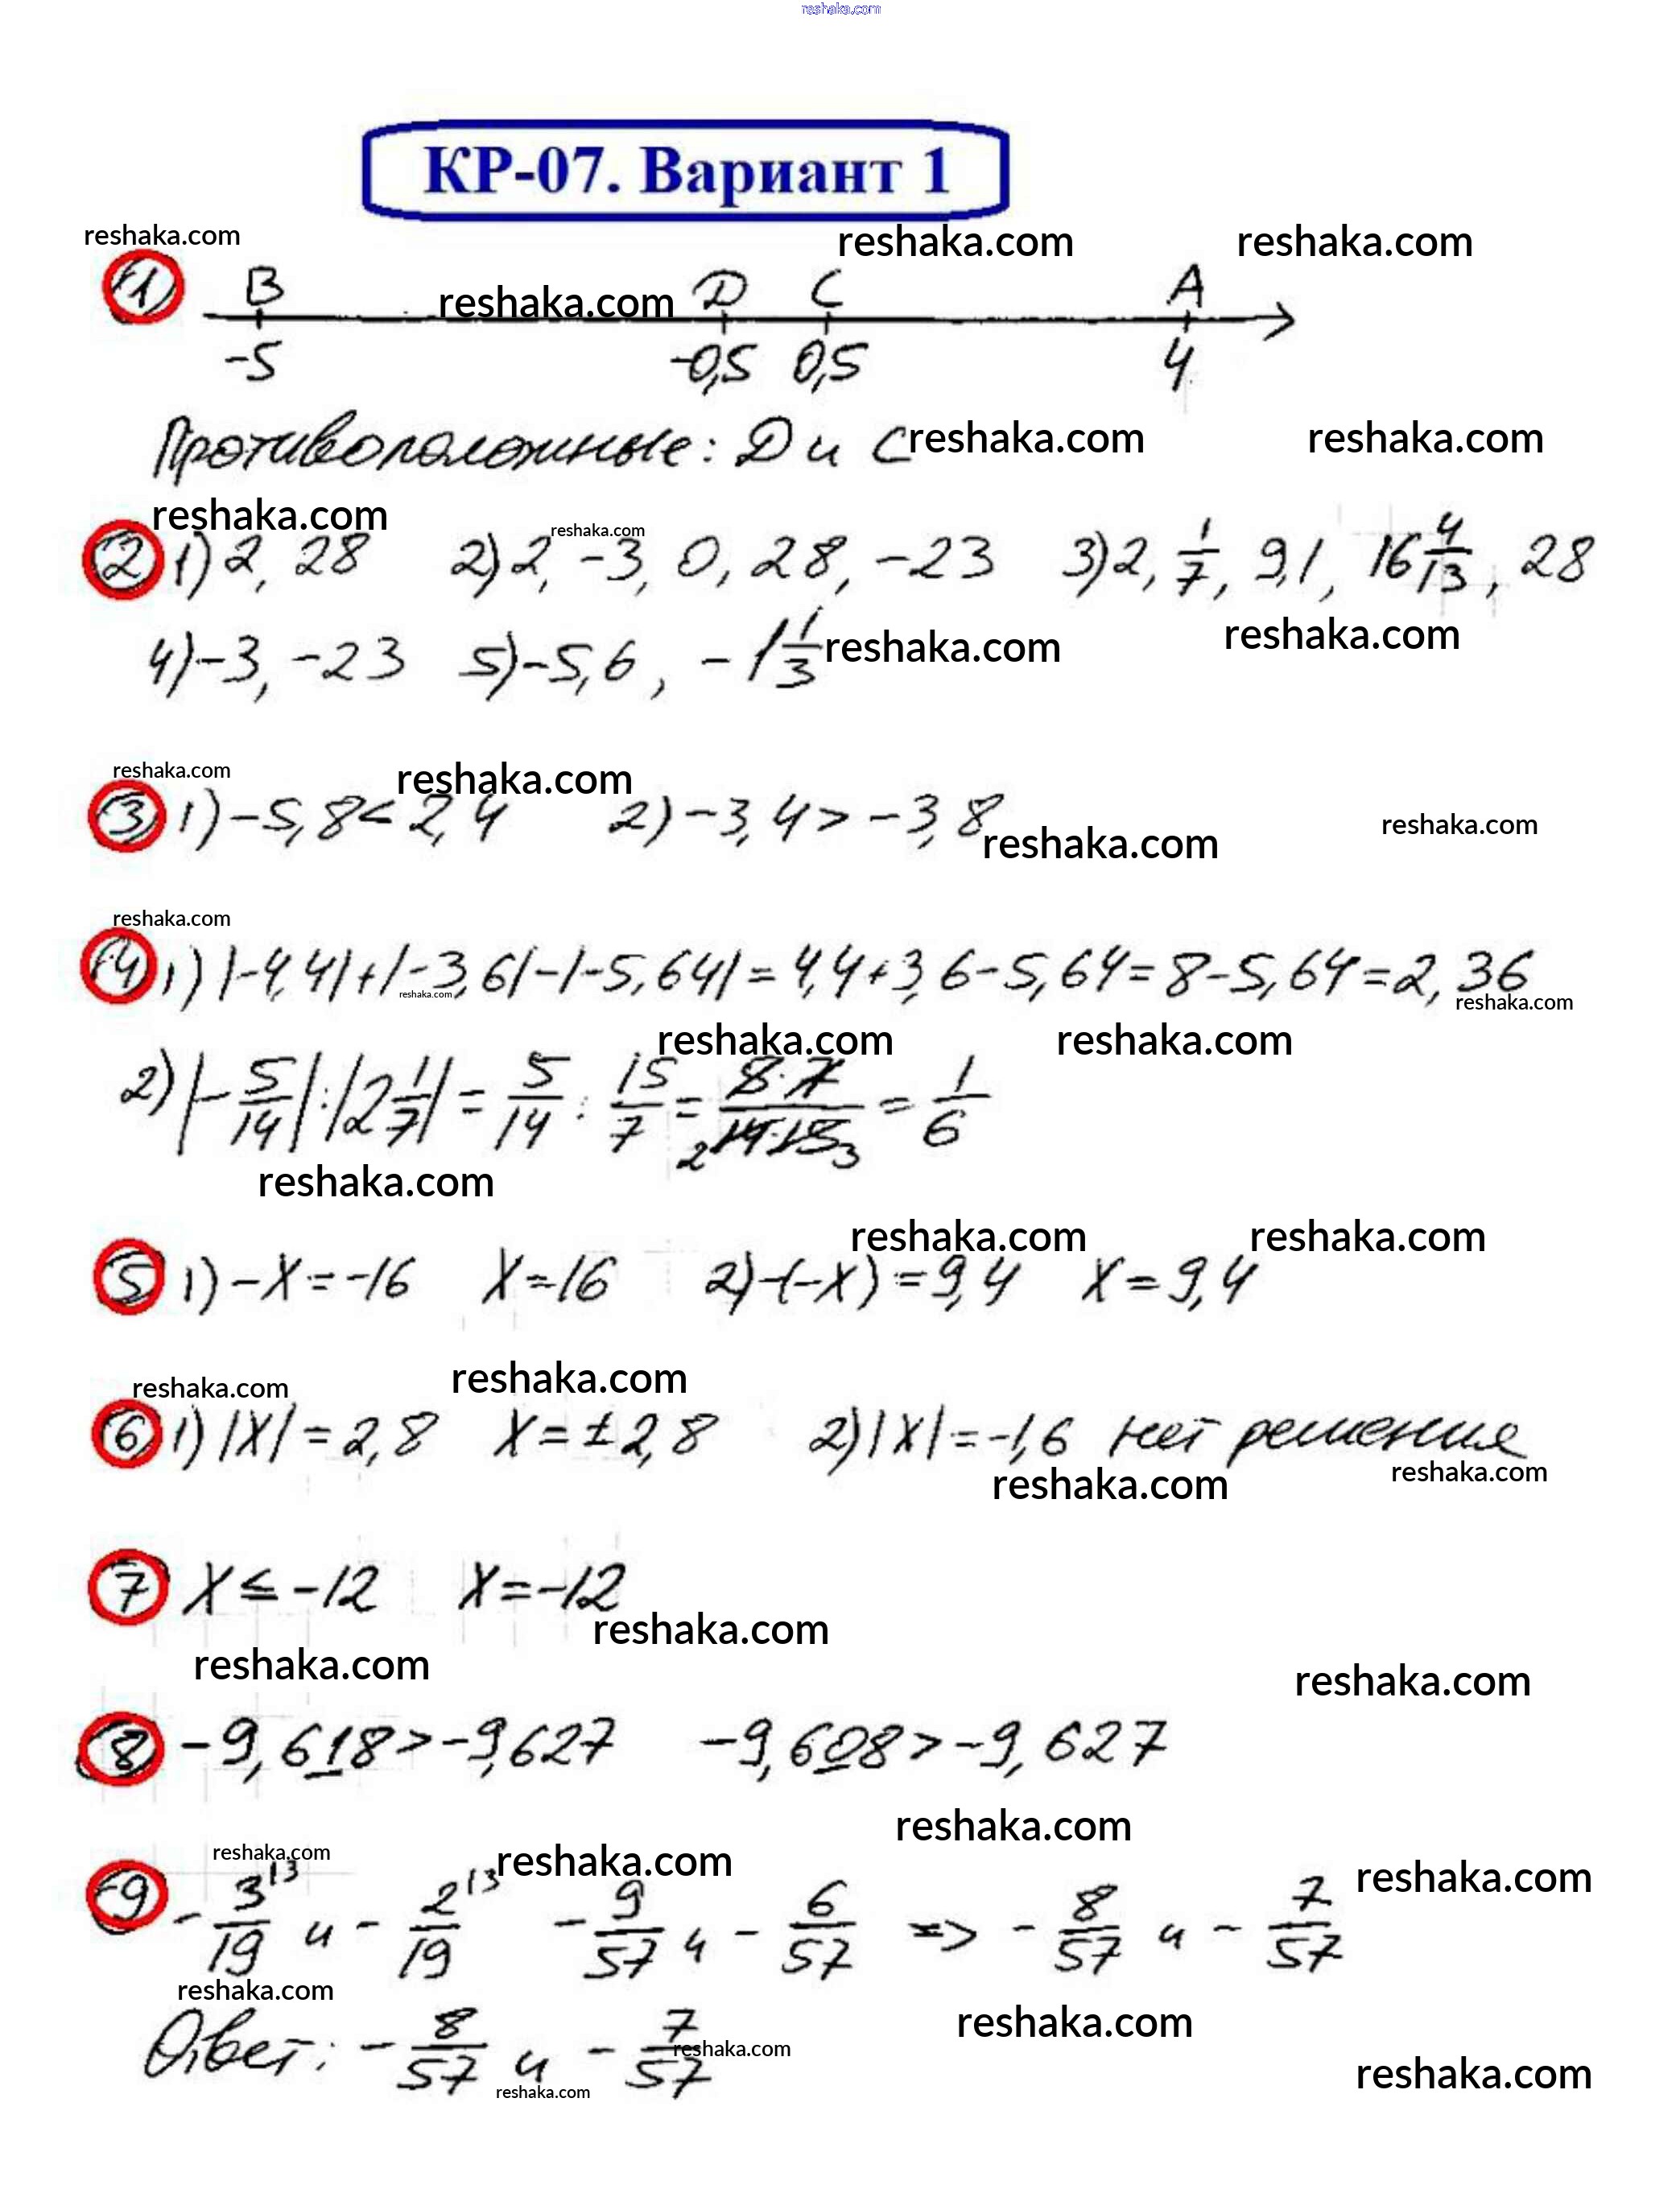 reshaka.com
КР-07. Вариант 1
reshaka.com reshaka.com reshaka.com
1) B reshaka.com D C A
-5 -0,5 0,5 4
Противоположные: D и C reshaka.com reshaka.com
reshaka.com reshaka.com
2) 1) 2, 28 2) 2, -3, 0, 28, -23 3) 2, 1/7, 9,1, 16 4/13, 28
4) -3, -23 5) -5,6, -1 1/3 reshaka.com reshaka.com
reshaka.com reshaka.com
3) 1) -5,8 < 2,4 2) -3,4 > -3,8 reshaka.com reshaka.com
reshaka.com
4) 1) |-4,4|+|-3,6|-|-5,64| = 4,4+3,6-5,64 = 8-5,64 = 2,36
reshaka.com reshaka.com
reshaka.com reshaka.com
2) |-5/14| : |2 1/7| = 5/14 : 15/7 = 8·7/2 14·15 3 = 1/6
reshaka.com
reshaka.com reshaka.com
5) 1) -x = -16 x = 16 2) -(-x) = 9,4 x = 9,4
reshaka.com reshaka.com
6) 1) |x| = 2,8 x = ±2,8 2) |x| = -1,6 нет решения
reshaka.com reshaka.com
7 x ≤ -12 x = -12
reshaka.com
reshaka.com reshaka.com
8) -9,618 > -9,627 -9,608 > -9,627
reshaka.com
reshaka.com reshaka.com reshaka.com
9 -3/19 |3 и -2/19 |3 -9/57 и -6/57 => -8/57 и -7/57
reshaka.com
Ответ: -8/57 и -7/57 reshaka.com reshaka.com
reshaka.com reshaka.com